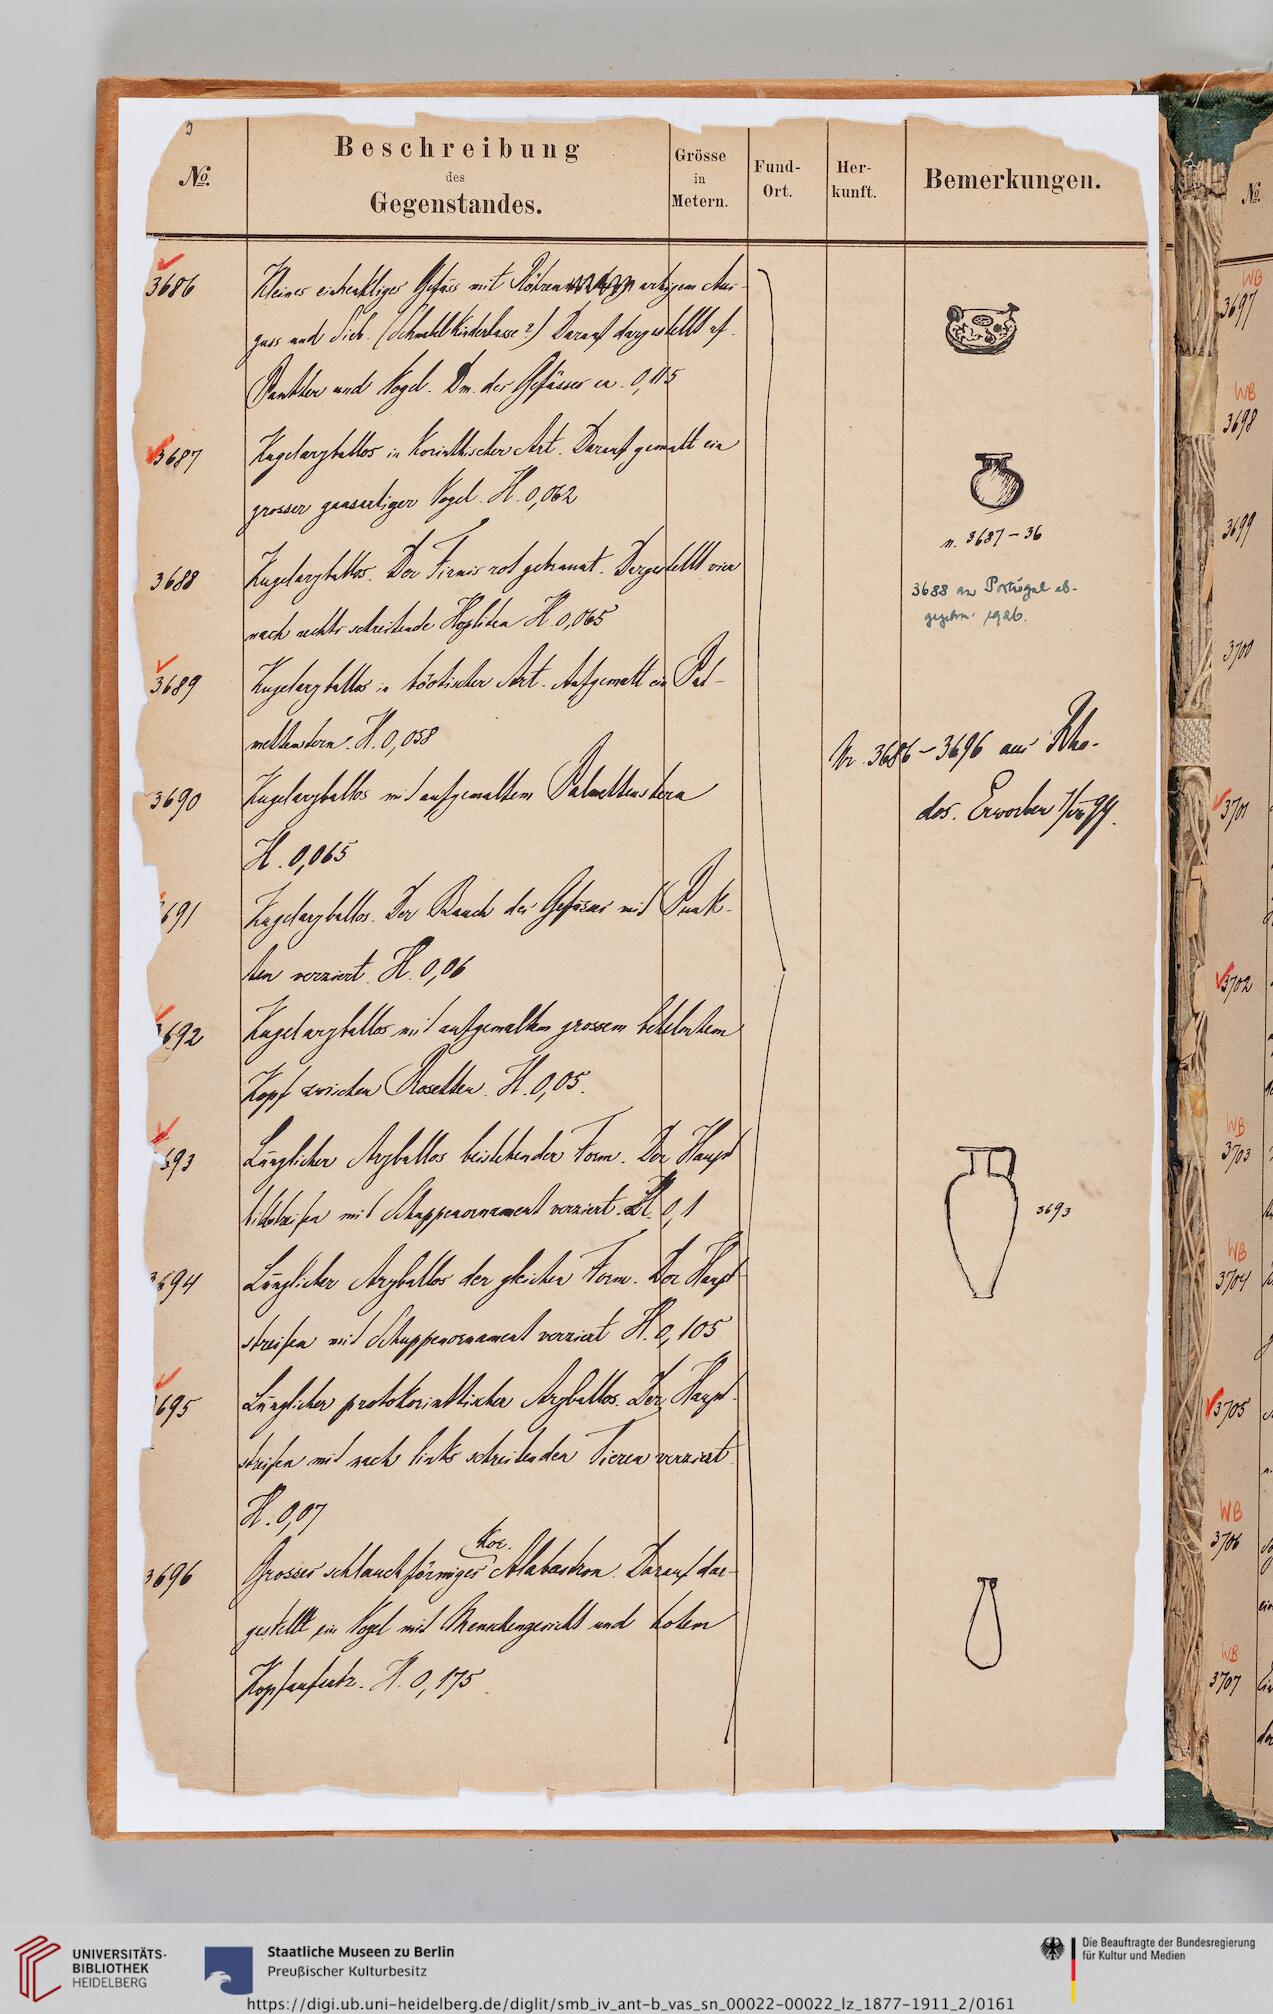 No.
Beschreibung
des
Gegenstandes.
Grösse
in
Metern.
Fund-
Ort.
Her-
kunft.
Bemerkungen.
3686
Kleines einhenkliges Gefäss mit Röhren artigem Aus-
guss und Sieb. Darauf dargestellt
Panther und Vogel. Dm. des Gefässes ca. 0,115
3687
Kugelaryballos in Korinthischer Art. Darauf gemalt ein
grosser gansartiger Vogel. H. 0,062
n. 3687-36
3688
Kugelaryballos. Der Firnis rot gebrannt. Dargestellt vier
nach rechts schreitende Hopliten H. 0,065
3688 an Portugal ab-
gegeben 1926.
3689
Kugelaryballos in böotischer Art. Aufgemalt ein Pal-
mettenstern. H. 0,058
Nr. 3686-3696 aus Rho-
dos. Erworben
3690
Kugelaryballos mit aufgemaltem Palmettenstern
H. 0,065
691
Kugelaryballos. Der Bauch des Gefässes mit Punk-
ten verziert. H. 0,06
692
Kugelaryballos mit aufgemaltem grossem behelmtem
Kopf zwischen Rosetten. H. 0,05.
693
Länglicher Aryballos beistehender Form. Der Haupt
bildstreifen mit Schuppenornament verziert. H. 0,1
3693
3694
Länglicher Aryballos der gleichen Form. Der Haupt-
streifen mit Schuppenornament verziert H. 0,105
695
Länglicher protokorinthischer Aryballos. Der Haupt-
streifen mit nach links schreitenden Tieren verziert.
H. 0,07
3696
Kor.
Grosses schlauchförmiges Alabastron. Darauf dar-
gestellt ein Vogel mit Menschengesicht und hohem
Kopfaufsatz. H. 0,175.
No.
WB
3697
WB
3698
3699
3700
3701
3702
WB
3703
WB
3704
3705
WB
3706
WB
3707
UNIVERSITÄTS-
BIBLIOTHEK
HEIDELBERG
Staatliche Museen zu Berlin
Preußischer Kulturbesitz
Die Beauftragte der Bundesregierung
für Kultur und Medien
https://digi.ub.uni-heidelberg.de/diglit/smb_iv_ant-b_vas_sn_00022-00022_lz_1877-1911_2/0161